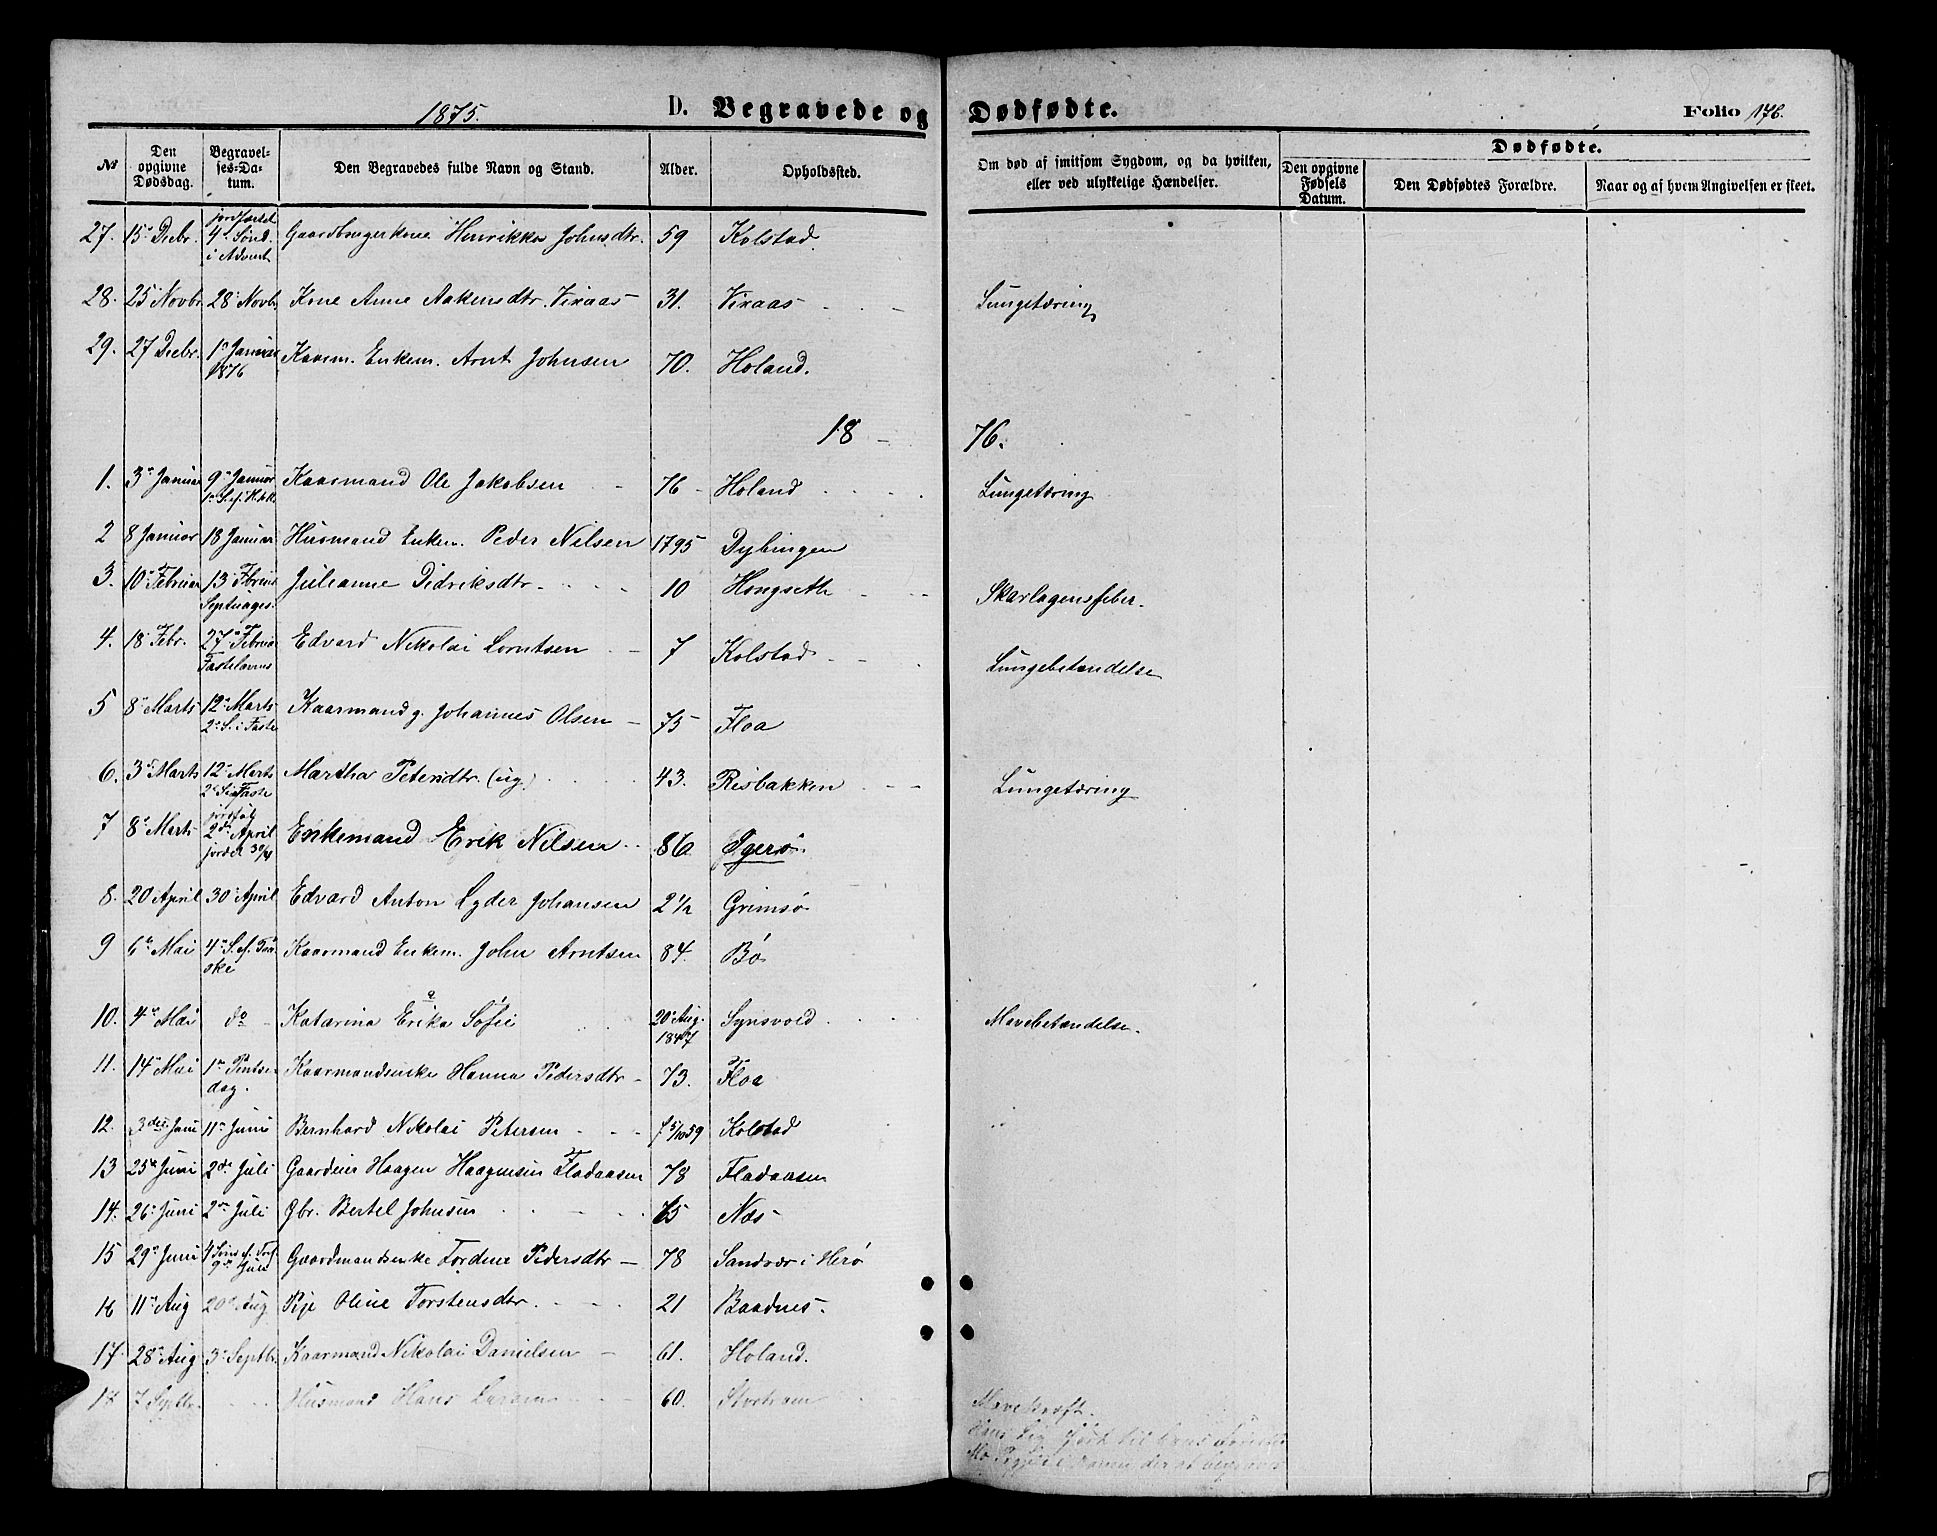 1875.
D. Begravede og Dødfødte.
Folio 176.
№
Den opgivne Dødsdag.
Begravelses-Datum.
Den Begravedes fulde Navn og Stand.
Alder.
Opholdssted.
Om død af smitsom Sygdom, og da hvilken, eller ved ulykkelige Hændelser.
Dødfødte.
Den opgivne Fødsels Datum.
Den Dødfødtes Forældre.
Naar og af hvem Angivelsen er skeet.
27. 15. Decbr. jordfæstet 4. Sønd. i Advent Gaardbrugerkone Henrikka Johnsdtr. 59 Kolstad.
28. 25 Novbr. 28. Novbr. Kone Anne Aakensdtr. Vixaas 31. Vixaas Lungetæring
29. 27 Decbr. 1. Januar 1876 Kaarm. Enkem. Arnt Johnsen 70. Holand.
18 76.
1. 3. Januar 9. Januar 1. S. f. H.3.K. Kaarmand Ole Jakobsen 76 Holand Lungetæring
2 8 Januar 18 Januar Husmand Enkem. Peder Nilsen 1795 Dybingen
3. 10. Februar 13. Februar Septuages. Julianne Didriksdtr. 10 Hongseth Skarlagensfeber.
4. 18. Febr. 27. Februar Fastelavns Edvard Nikolai Lorntsen 7 Kolstad Lungebetændelse
5 8. Marts 12. Marts 2. S. i Faste Kaarmand g. Johannes Olsen 75 Floa
6. 3. Marts 12. Marts 2. S. i Faste Martha Petersdtr. (ug.) 43. Risbakken Lungetæring
7 8. Marts 2den April jordet 30/4 Enkemand Erik Nilsen 86 Ygerø
8. 20 April 30. April Edvard Anton Lyder Johansen 2 1/2 Grimsø
9 6. Mai 4. S. f. Paaske Kaarmand Enkem. John Arntsen 84. Bø
10. 4. Mai do Katarina Erika Sofie 20. Aug. 1847 Synsvold Mavebetændelse.
11. 14. Mai 1. Pintsedag. Kaarmandsenke Hanna Pedersdtr. 73. Floa
12. 3die Juni 11. Juni Bernhard Nikolai Petersen f 5/10 59 Kolstad
13 25. Juni 2den Juli Gaardeier Haagen Haagensen Fladaasen 78 Fladaasen
14. 26. Juni 2den Juli Gbr. Bertel Johnsen 65 Næs
15 29. Juni 4 Sønd. f. Tref. 9. Juli Gaardmandsenke Fordine Pedersdtr 78 Sandvær i Herø
16 11. Aug 20. Aug Pige Oline Torstensdtr. 21 Baadnes.
17. 28. Aug 3. Septbr. Kaarmand Nikolai Danielsen 61. Holand.
18 7 Septbr. Husmand Hans Larsen 60. Storhram Mavekræft.
Hans Lig ført til hans
der at begraves